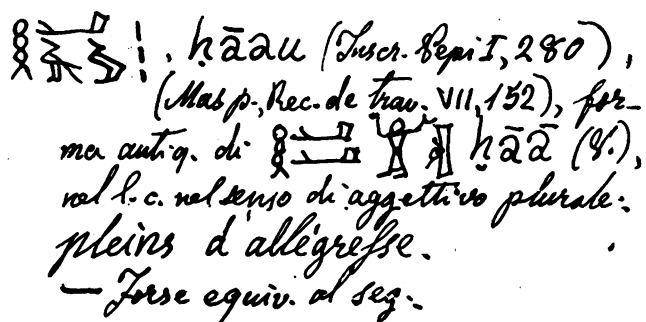 , ḥāau (Inscr. Pepi I, 280),
(Masp., Rec. de trav. VII, 152), for-
ma antiq. di ḥāā (V.),
nel l. c. nel senso di aggettivo plurale:
pleins d'allégresse.
— Forse equiv. al seg.